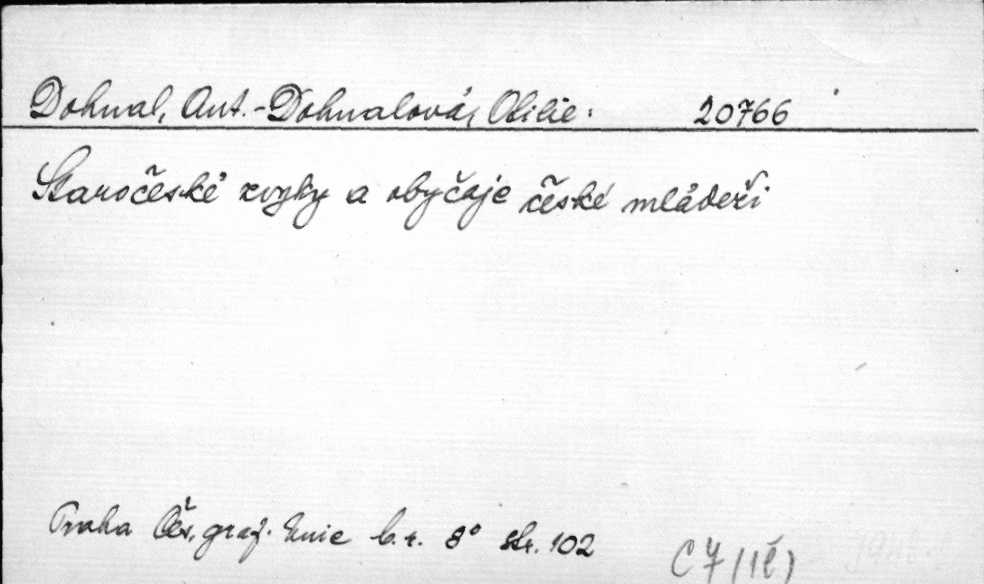 Dohnal, Ant. - Dohnalová, Otilie: 20766
Staročeské zvyky a obyčeje české mládeži
Praha Čes. graf. Unie b.r. 8° str. 102
C 7